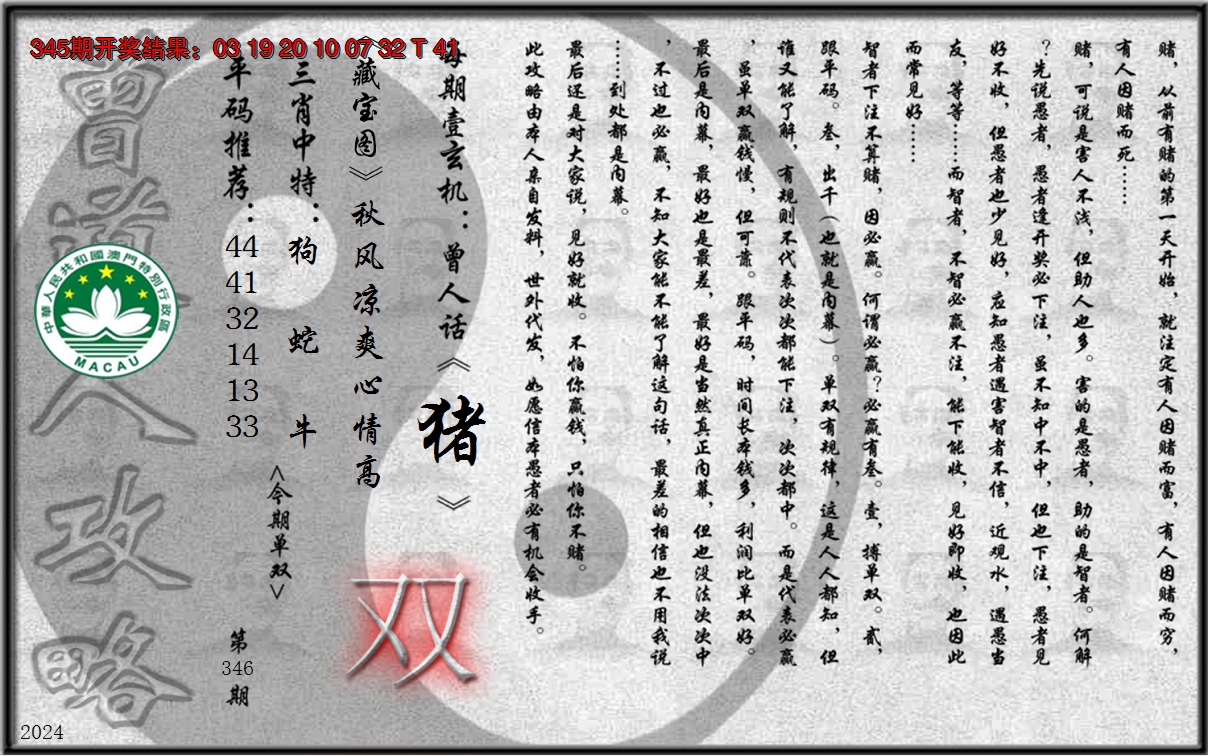 345期开奖结果：03 19 20 10 07 32 T 41
赌，从前有赌的第一天开始，就注定有人因赌而富，有人因赌而穷，
有人因赌而死……
赌，可说是害人不浅，但助人也多。害的是愚者，助的是智者。何解
？先说愚者，愚者逢开奖必下注，虽不知中不中，但也下注，愚者见
好不收，但愚者也少见好，应知愚者遇害智者不信，近观水，遇愚当
友，等等……而智者，不智必赢不注，能下能收，见好即收，也因此
而常见好……
智者下注不算赌，因必赢。何谓必赢？必赢有叁。壹，搏单双。贰，
跟平码。叁，出千（也就是内幕）。单双有规律，这是人人都知，但
谁又能了解，有规则不代表次次都能下注，次次都中。而是代表必赢
，虽单双赢钱慢，但可靠。跟平码，时间长本钱多，利润比单双好。
最后是内幕，最好也是最差，最好是当然真正内幕，但也没法次次中
，不过也必赢，不知大家能不能了解这句话，最差的相信也不用我说
……到处都是内幕。
最后还是对大家说，见好就收。不怕你赢钱，只怕你不赌。
此攻略由本人亲自发料，世外代发，如愿信本愚者必有机会收手。
每期壹玄机：曾人话《猪》
《藏宝图》秋风凉爽心情高
双
三肖中特：狗 蛇 牛
<今期单双>
平码推荐：
44
41
32
14
13
33
第
346
期
曾道人攻略
中華人民共和國澳門特別行政區
MACAU
2024